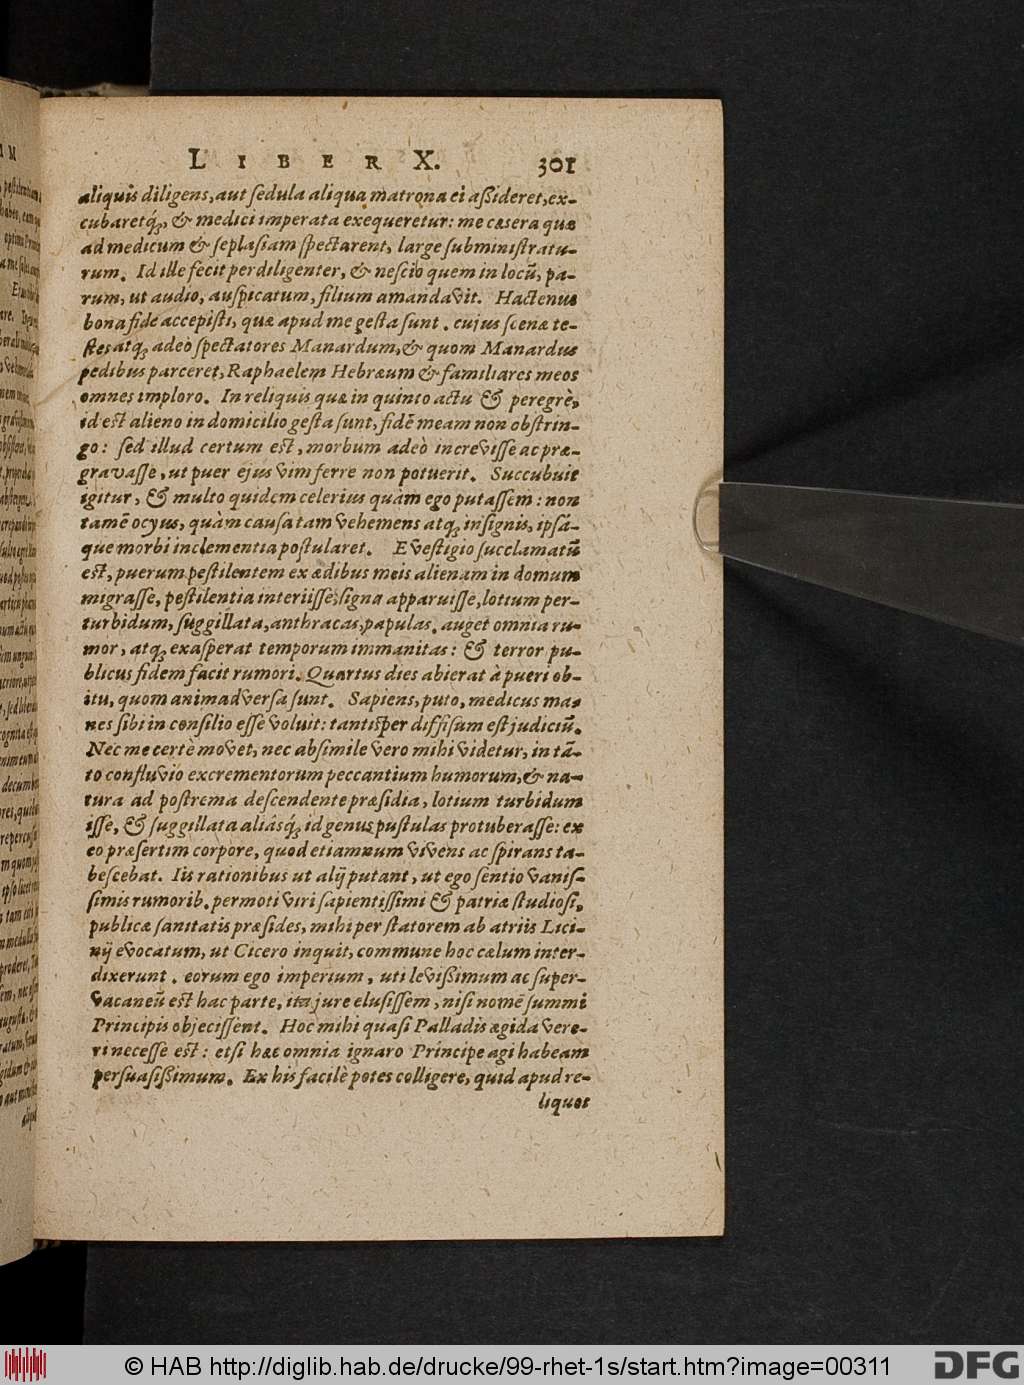 LIBER X. 301
aliquis diligens, aut sedula aliqua matrona ei aßideret, ex-
cubaretq́;, & medici imperata exequeretur: me cæsera quæ
ad medicum & seplasiam spectarent, large subministratu-
rum. Id ille fecit perdiligenter, & nescio quem in locũ, pa-
rum, ut audio, auspicatum, filium amandavit. Hactenus
bona fide accepisti, quæ apud me gesta sunt. cujus scenæ te-
stes atq; adeò spectatores Manardum, & quom Manardus
pedibus parceret, Raphaelem Hebræum & familiares meos
omnes imploro. In reliquis quæ in quinto actu & peregrè,
id est alieno in domicilio gesta sunt, fidẽ meam non obstrin-
go: sed illud certum est, morbum adeò increvisse ac præ-
gravasse, ut puer ejus vim ferre non potuerit. Succubuit
igitur, & multo quidem celerius quàm ego putassem: non
tamẽ ocyus, quàm causa tam vehemens atq; insignis, ipsã-
que morbi inclementia postularet. Evestigio succlamatũ
est, puerum pestilentem ex ædibus meis alienam in domum
migrasse, pestilentia interiisse; signa apparuisse, lotium per-
turbidum, suggillata, anthracas, papulas. auget omnia ru-
mor, atq; exasperat temporum immanitas: & terror pu-
blicus fidem facit rumori. Quartus dies abierat à pueri ob-
itu, quom animadversa sunt. Sapiens, puto, medicus ma-
nes sibi in consilio esse voluit: tantisper diffisum est judiciũ.
Nec me certè movet, nec absimile vero mihi videtur, in tã-
to confluvio excrementorum peccantium humorum, & na-
tura ad postrema descendente præsidia, lotium turbidum
isse, & suggillata aliásq́; id genus pustulas protuberasse: ex
eo præsertim corpore, quod etiamnum vivens ac spirans ta-
bescebat. Iis rationibus ut alij putant, ut ego sentio vanis-
simis rumorib. permoti viri sapientissimi & patriæ studiosi,
publicæ sanitatis præsides, mihi per statorem ab atriis Lici-
nij evocatum, ut Cicero inquit, commune hoc cælum inter-
dixerunt. eorum ego imperium, uti levißimum ac super-
vacaneũ est hac parte, ita jure elusissem, nisi nomẽ summi
Principis objecissent. Hoc mihi quasi Palladis ægida vere-
ri necesse est: etsi hæc omnia ignaro Principe agi habeam
persuasißimum. Ex his facilè potes colligere, quid apud re-
liquos
© HAB http://diglib.hab.de/drucke/99-rhet-1s/start.htm?image=00311
DFG